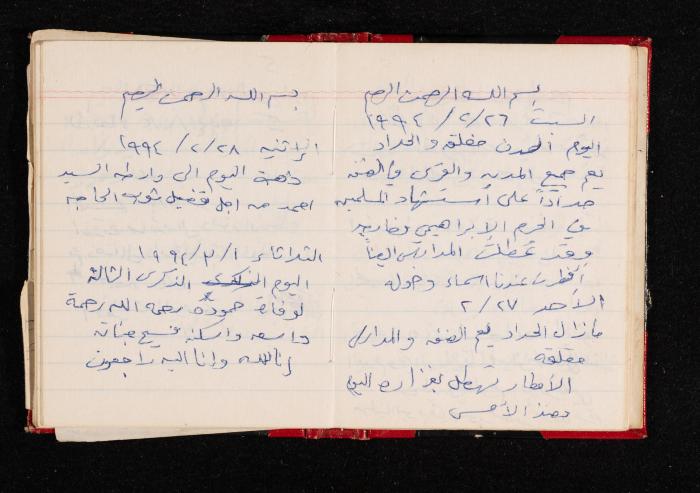 بسم الله الرحمن الرحيم
السبت ٢٦/ ٢/ ١٩٩٤
اليوم المدن مغلقة والحداد
يعم جميع المدن والقرى في الضفة
حداداً على استشهاد المسلمين
في الحرم الإبراهيمي
وقد عطلت المدارس أيضاً
أفطرت عندنا اسماء وخوله
الأحد ٢٧/ ٢
مازال الحداد يعم الضفة والمدارس
مغلقة
الأمطار تهطل بغزارة اليوم
ومنذ الأمس
بسم الله الرحمن الرحيم
الإثنين ٢٨/ ٢/ ١٩٩٤
ذهبت اليوم الى السيد
احمد من اجل تفصيل ثوب الحاجه
الثلاثاء ١/ ٣/ ١٩٩٤
اليوم الذكرى الثالثة
لوفاة حموده رحمه الله رحمة
واسعه واسكنه فسيح جناته
إنا لله وإنا اليه راجعون